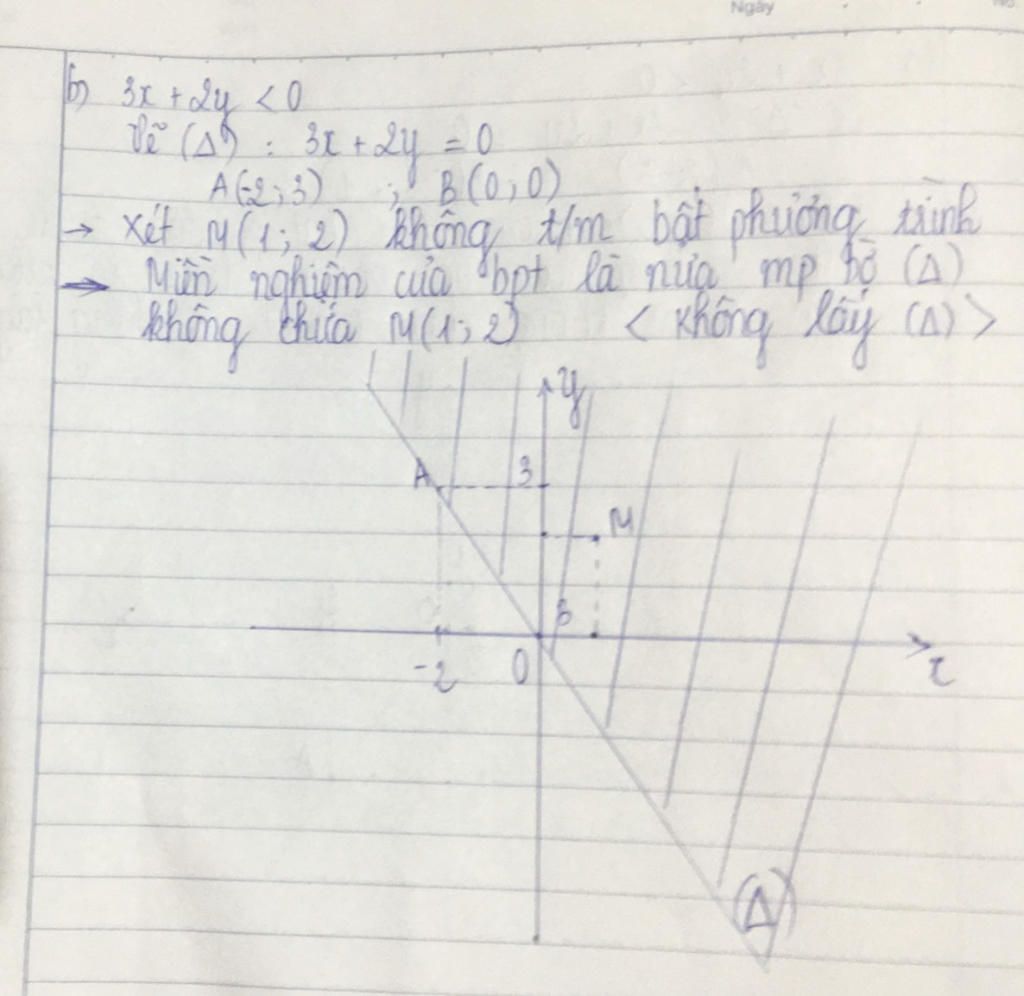 Ngày
b) 3x + 2y < 0
Vẽ (Δ) : 3x + 2y = 0
A(-2; 3) ; B(0; 0)
→ Xét M(1; 2) không t/m bất phương trình
→ Miền nghiệm của bpt là nửa mp bờ (Δ)
không chứa M(1; 2) < không lấy (Δ) >
y
A 3
M
B
-2 0 x
(Δ)